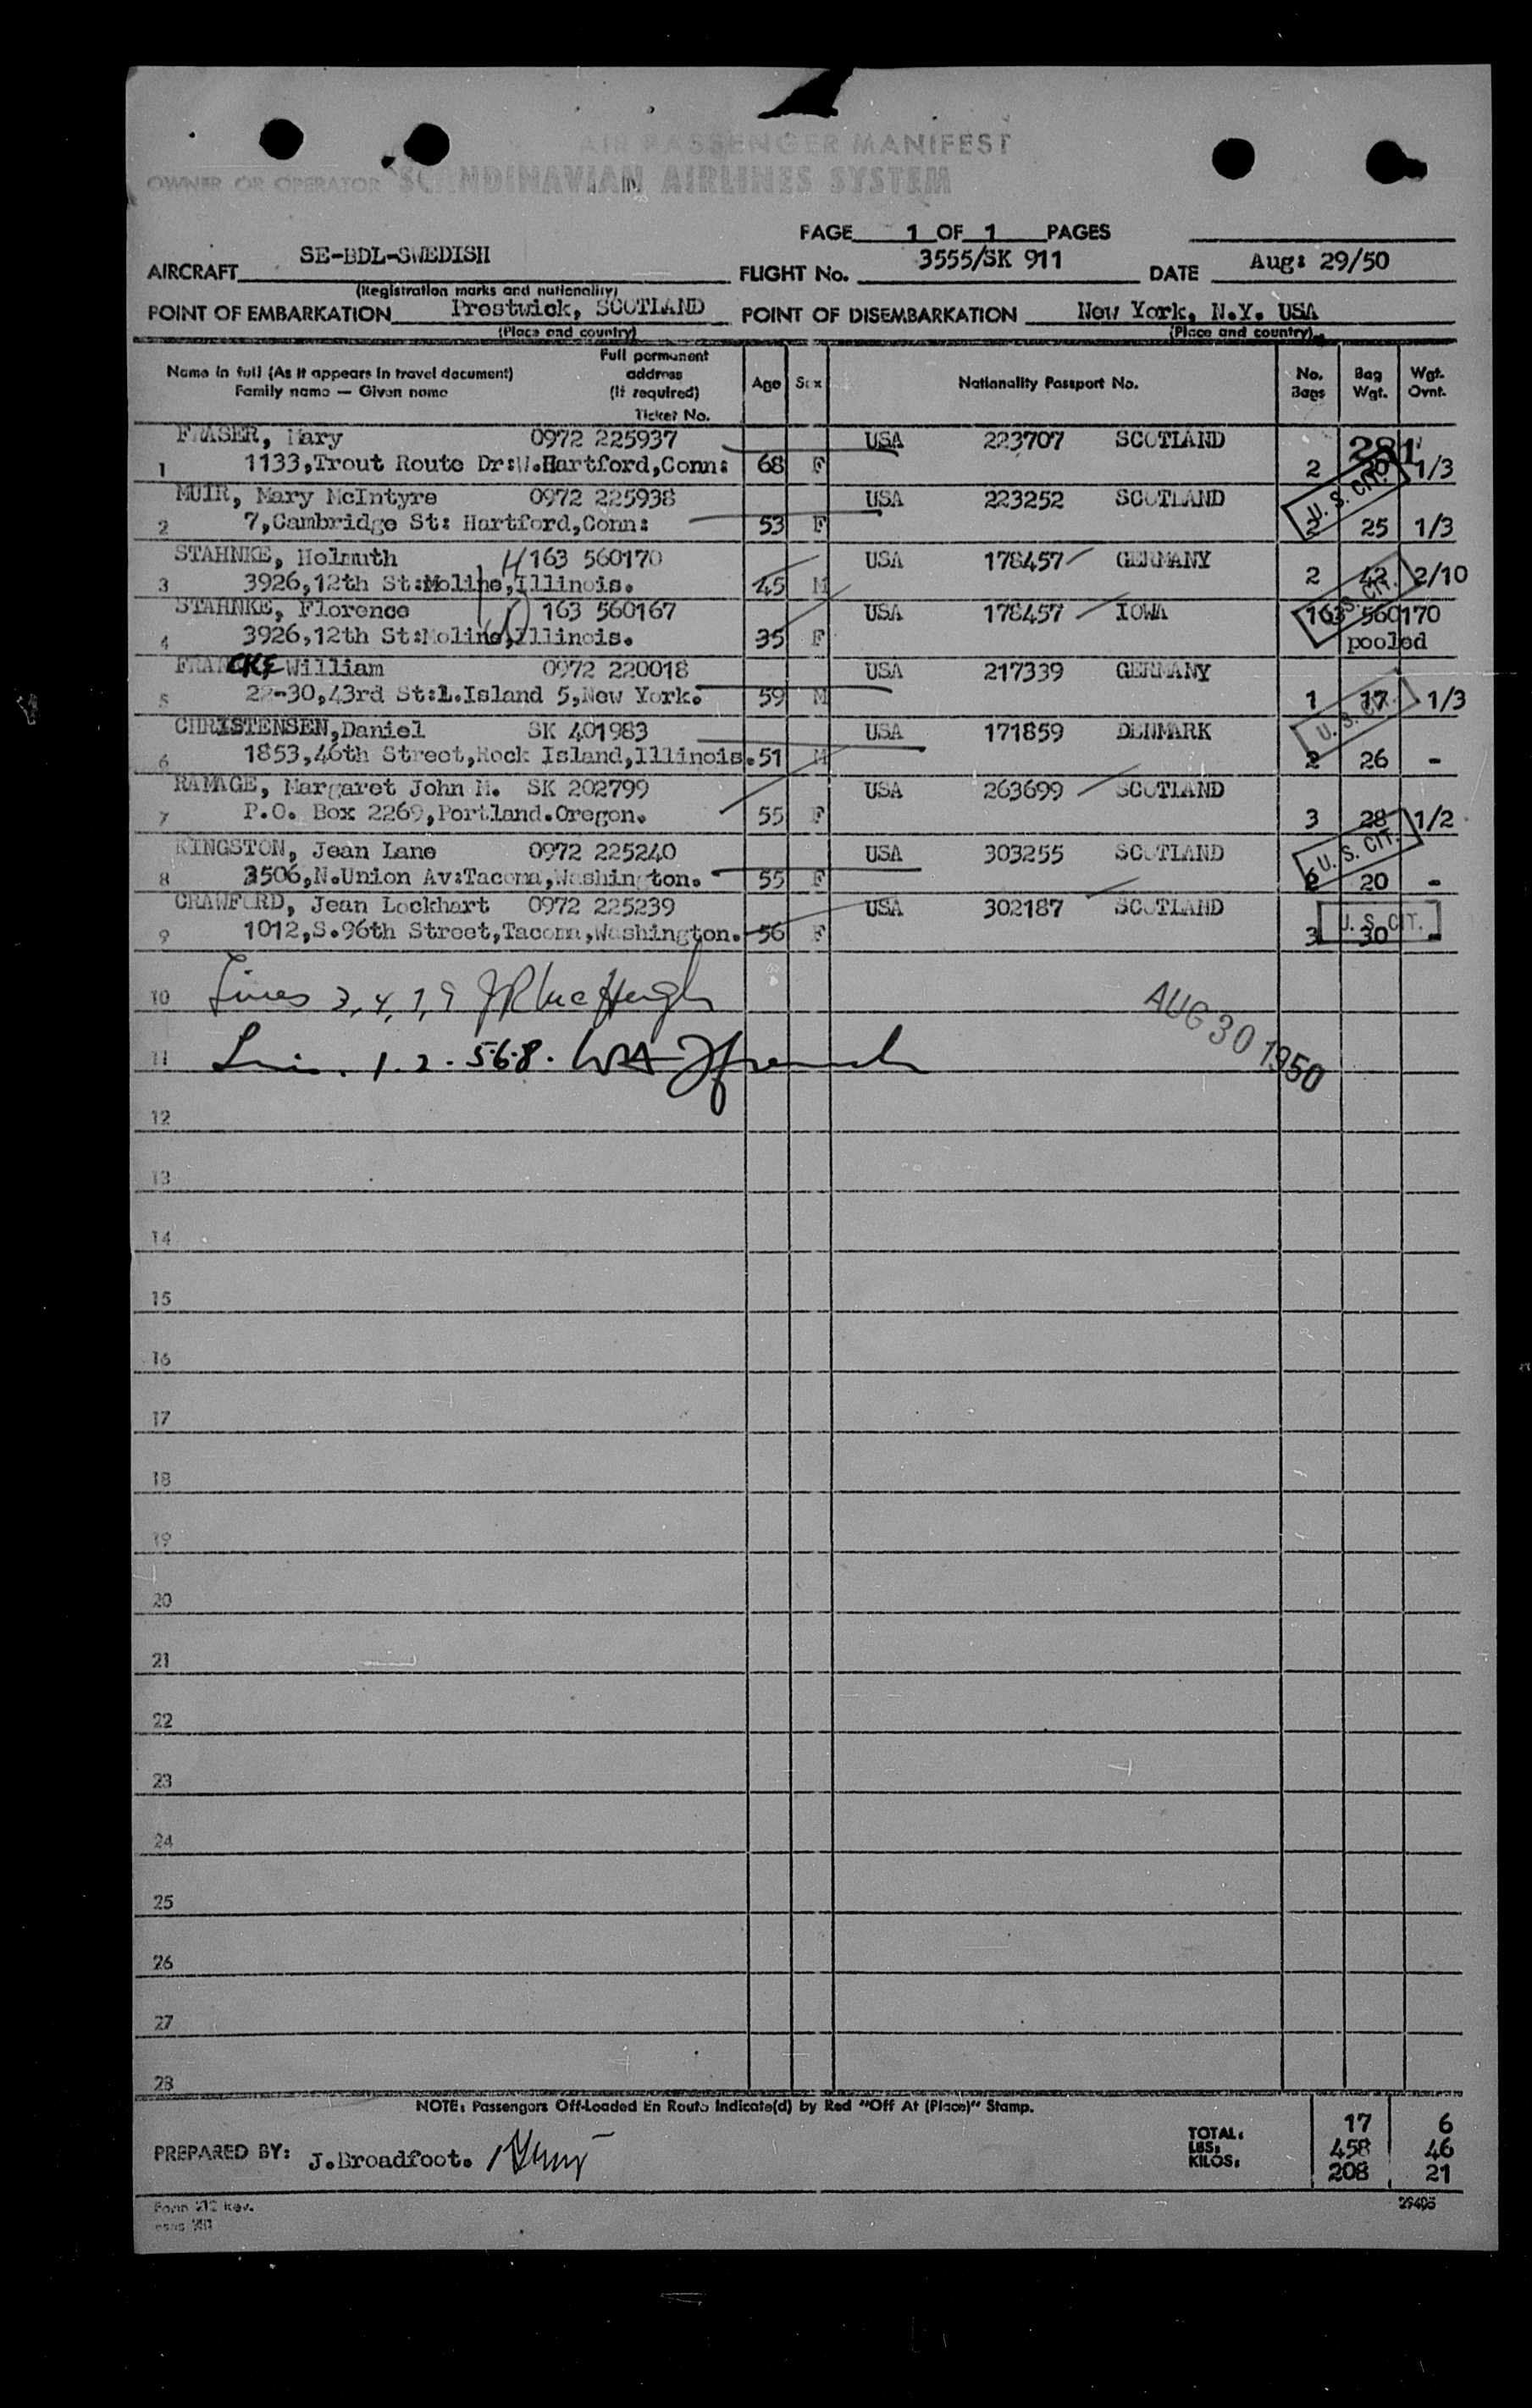 AIR PASSENGER MANIFEST
OWNER OR OPERATOR SCANDINAVIAN AIRLINES SYSTEM
PAGE 1 OF 1 PAGES
AIRCRAFT SE-BDL-SWEDISH FLIGHT No. 3555/SK 911 DATE Aug: 29/50
(Registration marks and nationality)
POINT OF EMBARKATION Prestwick, SCOTLAND POINT OF DISEMBARKATION New York, N.Y. USA
(Place and country) (Place and country)
Name in full (As it appears in travel document) Family name — Given name Full permanent address (If required) Ticket No. Age Sex Nationality Passport No. No. Bags Bag Wgt. Wgt. Ovnt.
281
FRASER, Mary 0972 225937 USA 223707 SCOTLAND
1 1133,Trout Route Dr:W.Hartford,Conn: 68 F 2 30 1/3
MUIR, Mary McIntyre 0972 225938 USA 223252 SCOTLAND U. S. CIT.
2 7,Cambridge St: Hartford,Conn: 53 F 2 25 1/3
STAHNKE, Helmuth H 163 560170 USA 178457 GERMANY
3 3926,12th St:Moline,Illinois. 45 M 2 42 2/10
STAHNKE, Florence 163 560167 USA 178457 IOWA 163 560170 U. S. CIT.
4 3926,12th St:Moline,Illinois. 35 F pooled
FRANCKE William 0972 220018 USA 217339 GERMANY
5 22-30,43rd St:L.Island 5,New York. 59 M 1 17 1/3
CHRISTENSEN,Daniel SK 401983 USA 171859 DENMARK U. S. CIT.
6 1853,46th Street,Rock Island,Illinois. 51 M 2 26 -
RAMAGE, Margaret John M. SK 202799 USA 263699 SCOTLAND
7 P.O. Box 2269,Portland.Oregon. 55 F 3 28 1/2
KINGSTON, Jean Lane 0972 225240 USA 303255 SCOTLAND U. S. CIT.
8 3506,N.Union Av:Tacoma,Washington. 55 F 2 20 -
CRAWFORD, Jean Lockhart 0972 225239 USA 302187 SCOTLAND U. S. CIT.
9 1012,S.96th Street,Tacoma,Washington. 56 F 3 30 -
10 Lines 3, 4, 7, 9
AUG 30 1950
11 1. 2. 5.6.8.
12
13
14
15
16
17
18
19
20
21
22
23
24
25
26
27
28
NOTE: Passengers Off-Loaded En Route Indicate(d) by Red "Off At (Place)" Stamp.
PREPARED BY: J.Broadfoot.
TOTAL: 17 6
LBS: 458 46
KILOS: 208 21
Form 212 Rev.
29405